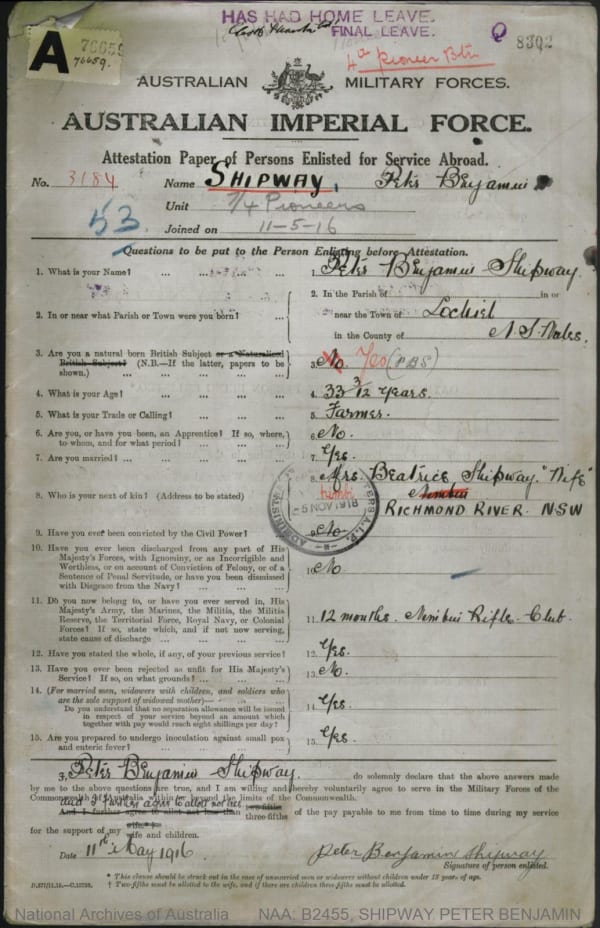 HAS HAD HOME LEAVE.
FINAL LEAVE.
A 76659
76659.
Q 8302
4th Pioneer Btn
AUSTRALIAN MILITARY FORCES.
AUSTRALIAN IMPERIAL FORCE.
Attestation Paper of Persons Enlisted for Service Abroad.
No. 3184 Name SHIPWAY, Peter Benjamin
Unit 7/4 Pioneers
53 Joined on 11-5-16
Questions to be put to the Person Enlisting before Attestation.
1. What is your Name? ... ... ... ... 1. Peter Benjamin Shipway.
2. In or near what Parish or Town were you born? ... 2. In the Parish of in or
near the Town of Lochiel
in the County of N.S.Wales.
3. Are you a natural born British Subject or a Naturalized
British Subject? (N.B.—If the latter, papers to be
shown.) ... ... ... ... 3. No Yes (PBS)
4. What is your Age? ... ... ... ... 4. 33 3/12 Years.
5. What is your Trade or Calling? ... ... ... 5. Farmer.
6. Are you, or have you been, an Apprentice? If so, where,
to whom, and for what period? ... ... ... 6. No.
7. Are you married? ... ... ... ... 7. Yes.
8. Who is your next of kin? (Address to be stated) 8. Mrs. Beatrice Shipway. "Wife"
Nimbin
RICHMOND RIVER. NSW
5 NOV 1918
9. Have you ever been convicted by the Civil Power? ... 9. No
10. Have you ever been discharged from any part of His
Majesty's Forces, with Ignominy, or as Incorrigible and
Worthless, or on account of Conviction of Felony, or of a
Sentence of Penal Servitude, or have you been dismissed
with Disgrace from the Navy? ... ... ... 10. No
11. Do you now belong to, or have you ever served in, His
Majesty's Army, the Marines, the Militia, the Militia
Reserve, the Territorial Force, Royal Navy, or Colonial
Forces? If so, state which, and if not now serving,
state cause of discharge ... ... ... 11. 12 months. Nimbin Rifle Club.
12. Have you stated the whole, if any, of your previous service? 12. Yes.
13. Have you ever been rejected as unfit for His Majesty's
Service? If so, on what grounds? ... ... 13. No.
14. (For married men, widowers with children, and soldiers who
are the sole support of widowed mother)—
Do you understand that no separation allowance will be issued
in respect of your service beyond an amount which
together with pay would reach eight shillings per day? 14. Yes.
15. Are you prepared to undergo inoculation against small pox
and enteric fever? ... ... ... 15. Yes.
I, Peter Benjamin Shipway. do solemnly declare that the above answers made
by me to the above questions are true, and I am willing and hereby voluntarily agree to serve in the Military Forces of the
Commonwealth of Australia within or beyond the limits of the Commonwealth.
and I further agree to allot not less
And I further agree to allot not less than three-fifths of the pay payable to me from time to time during my service
for the support of my wife and children.
Date 11th May 1916 Peter Benjamin Shipway
Signature of person enlisted.
* This clause should be struck out in the case of unmarried men or widowers without children under 18 years of age.
† Two-fifths must be allotted to the wife, and if there are children three-fifths must be allotted.
National Archives of Australia NAA: B2455, SHIPWAY PETER BENJAMIN